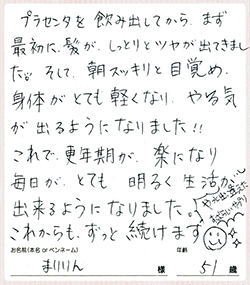 プラセンタを飲み出してから、まず
最初に、髪が、しっとりとツヤが出てきまし
た。そして、朝スッキリと目覚め、
身体がとても軽くなり、やる気
が出るようになりました!!
これで、更年期が、楽になり
毎日が、とても、明るく生活が、
出来るようになりました。
これからも、ずっと続けます
お名前(本名orペンネーム)
年齢
まりりん 様 51歳